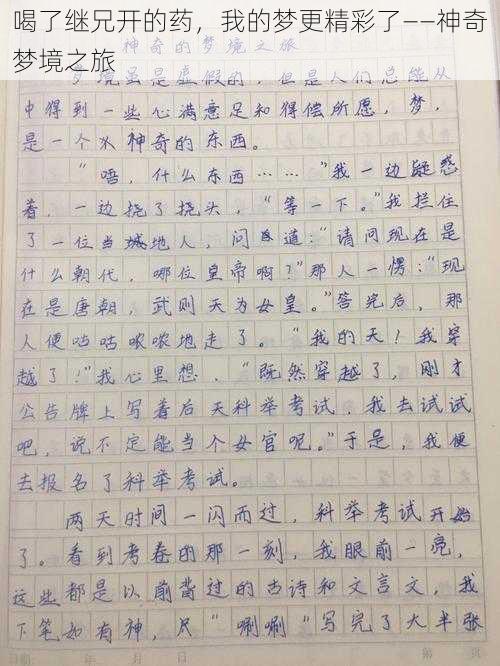 喝了继兄开的药，我的梦更精彩了——神奇
梦境之旅
神奇的梦境之旅
梦境虽是虚假的，但是人们总能从
中得到一些心满意足和得偿所愿，梦，
是一个神奇的东西。
“唔，什么东西……”我一边疑惑
着，一边挠了挠头，“等一下。”我拦住
了一位当地人，问道：“请问现在是
什么朝代，哪位皇帝啊？”那人一愣：“现
在是唐朝，武则天为女皇。”答完后，那
人便咕咕哝哝地走了。“我的天！我穿
越了！”我心里想，“既然穿越了，刚才
公告牌上写着后天科举考试，我去试试
吧，说不定能当个女官呢。”于是，我便
去报名了科举考试。
两天时间一闪而过，科举考试开始
了。看到考卷的那一刻，我眼前一亮，
这些都是以前背过的古诗和文言文，我
下笔如有神，只“唰唰”写完了大半张
年 月 日
第 页